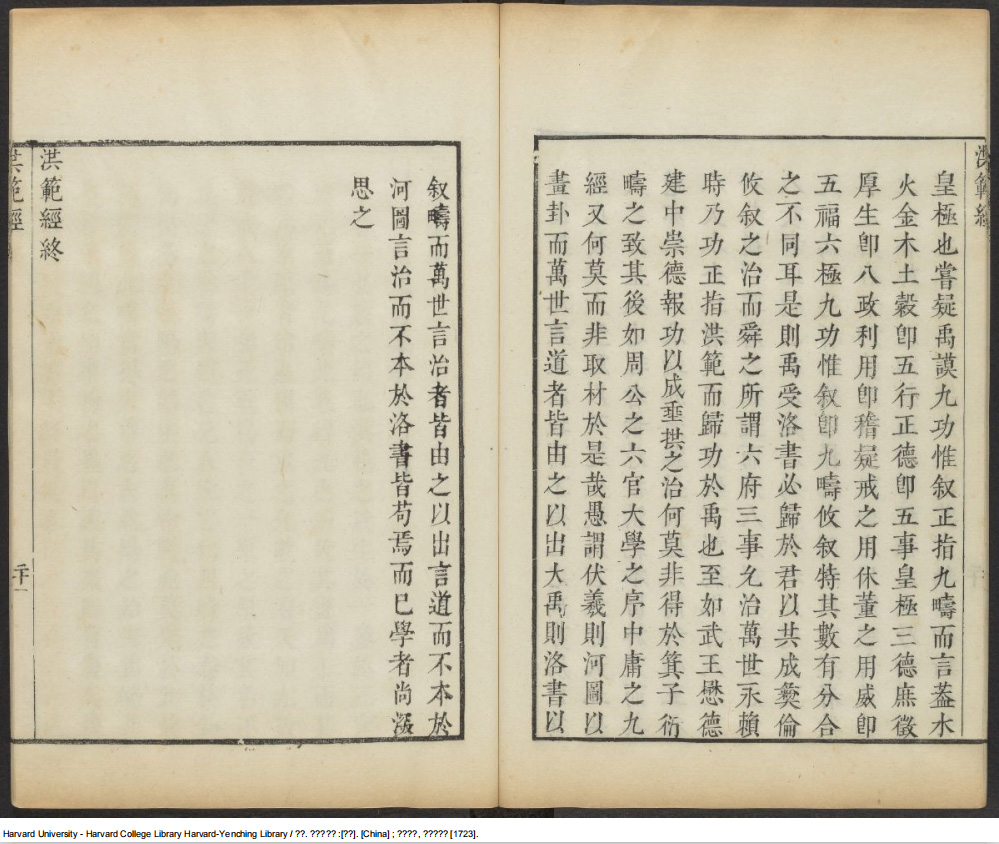 洪範經
皇極也嘗疑禹謨九功惟叙正指九疇而言葢水
火金木土穀卽五行正德卽五事皇極三德庶徵
厚生卽八政利用卽稽疑戒之用休董之用威卽
五福六極九功惟叙卽九疇攸叙特其數有分合
之不同耳是則禹受洛書必歸於君以共成彛倫
攸叙之治而舜之所謂六府三事允治萬世永賴
時乃功正指洪範而歸功於禹也至如武王懋德
建中崇德報功以成垂拱之治何莫非得於箕子衍
疇之致其後如周公之六官大學之序中庸之九
經又何莫而非取材於是哉愚謂伏羲則河圖以
畫卦而萬世言道者皆由之以出大禹則洛書以
叙疇而萬世言治者皆由之以出言道而不本於
河圖言治而不本於洛書皆苟焉而已學者尚
思之
洪範經終
洪範經
二十一
Harvard University - Harvard College Library Harvard-Yenching Library / ??. ????? :[??]. [China] ; ????, ????? [1723].